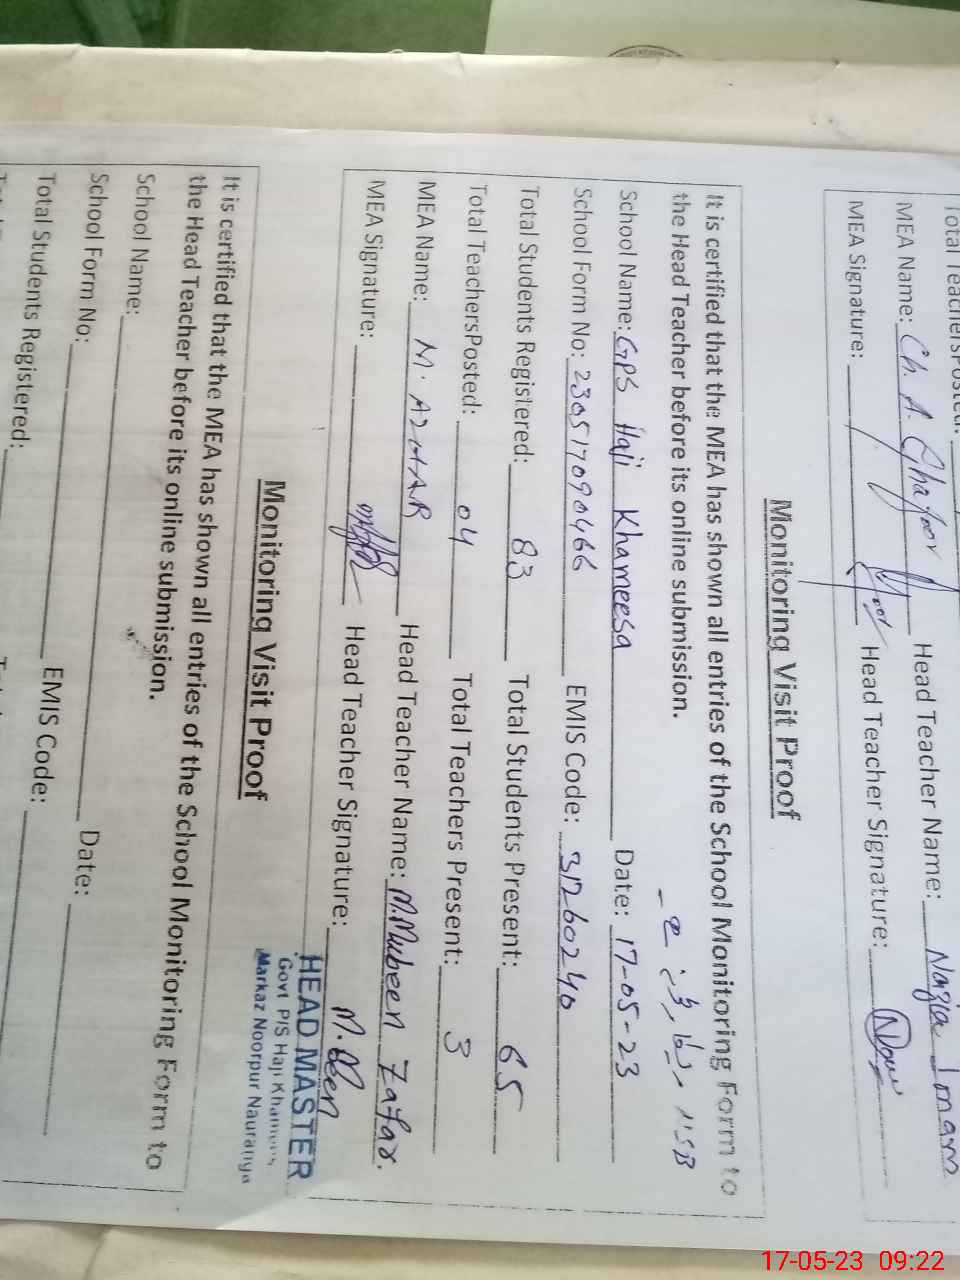 Total TeachersPosted:
MEA Name: Ch. A. Ghafoor Head Teacher Name: Nazia Imam
MEA Signature: Head Teacher Signature:
Monitoring Visit Proof
It is certified that the MEA has shown all entries of the School Monitoring Form to
the Head Teacher before its online submission.
School Name: GPS Haji Khameesa Date: 17-05-23
School Form No: 230517090466 EMIS Code: 31260240
Total Students Registered: 83 Total Students Present: 65
Total TeachersPosted: 04 Total Teachers Present: 3
MEA Name: M. AZHAR Head Teacher Name: M. Mubeen Zafar.
MEA Signature: Head Teacher Signature:
HEAD MASTER
Govt P/S Haji Khameesa
Markaz Noorpur Nauranga
Monitoring Visit Proof
It is certified that the MEA has shown all entries of the School Monitoring Form to
the Head Teacher before its online submission.
School Name:
School Form No: Date:
Total Students Registered: EMIS Code:
17-05-23 09:22